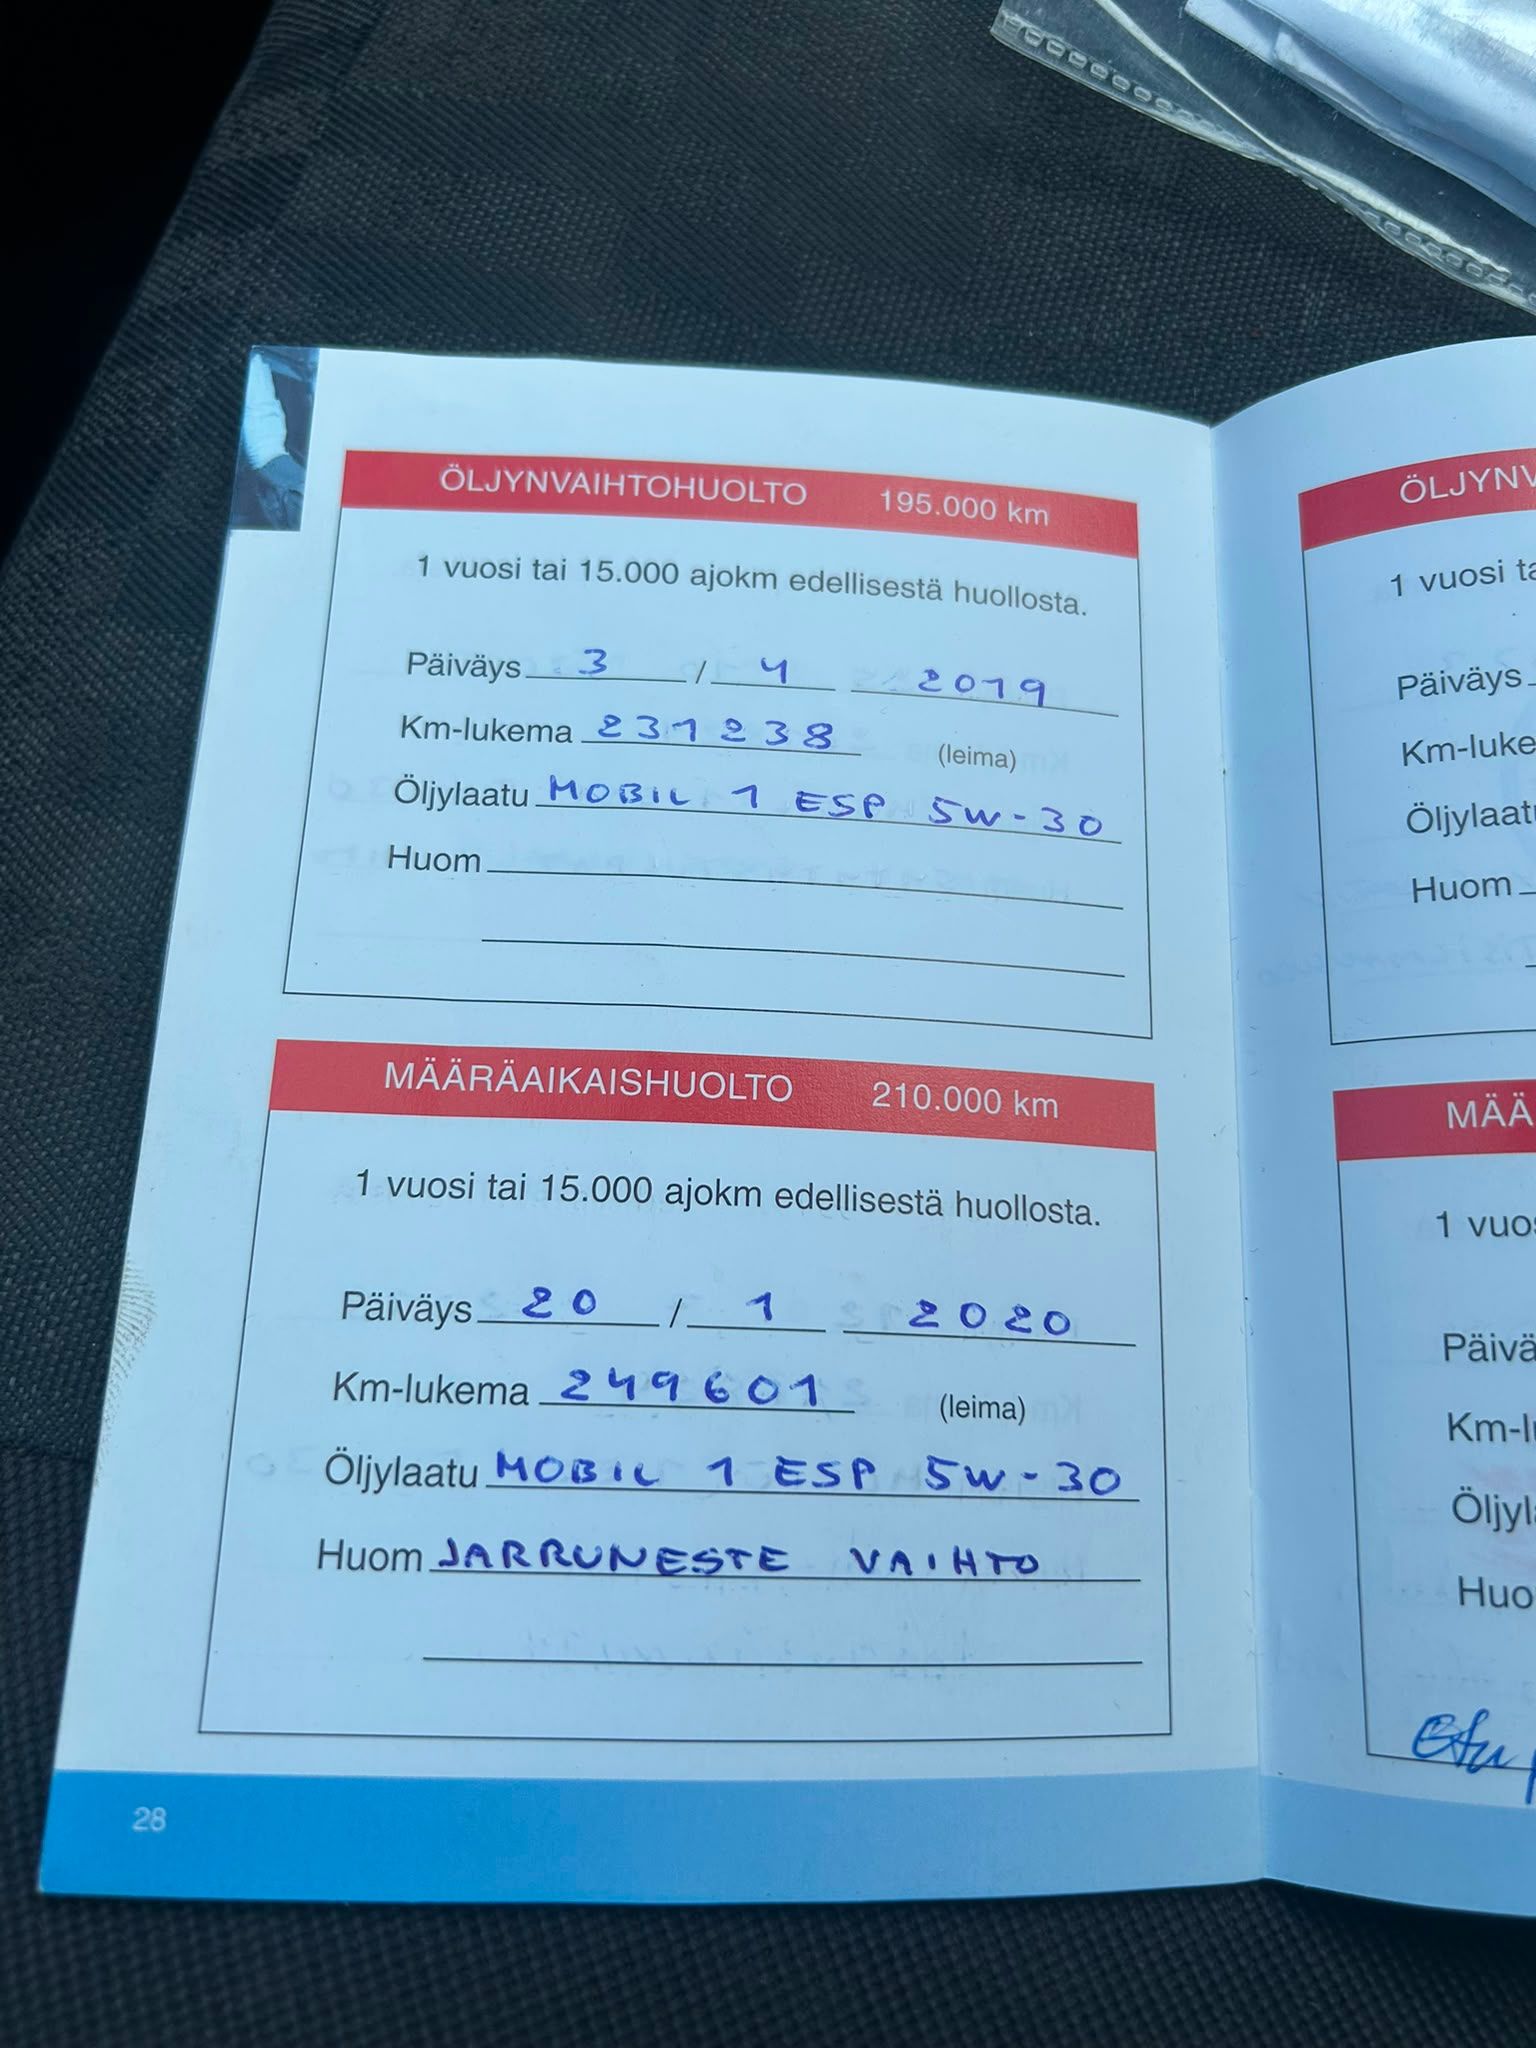 ÖLJYNVAIHTOHUOLTO 195.000 km
1 vuosi tai 15.000 ajokm edellisestä huollosta.
Päiväys 3 / 4 2019
Km-lukema 231238 (leima)
Öljylaatu MOBIL 1 ESP 5W-30
Huom
MÄÄRÄAIKAISHUOLTO 210.000 km
1 vuosi tai 15.000 ajokm edellisestä huollosta.
Päiväys 20 / 1 2020
Km-lukema 249601 (leima)
Öljylaatu MOBIL 1 ESP 5W-30
Huom JARRUNESTE VAIHTO
28
ÖLJYNV
1 vuosi ta
Päiväys
Km-luke
Öljylaat
Huom
MÄÄ
1 vuos
Päivä
Km-l
Öljyl
Huo